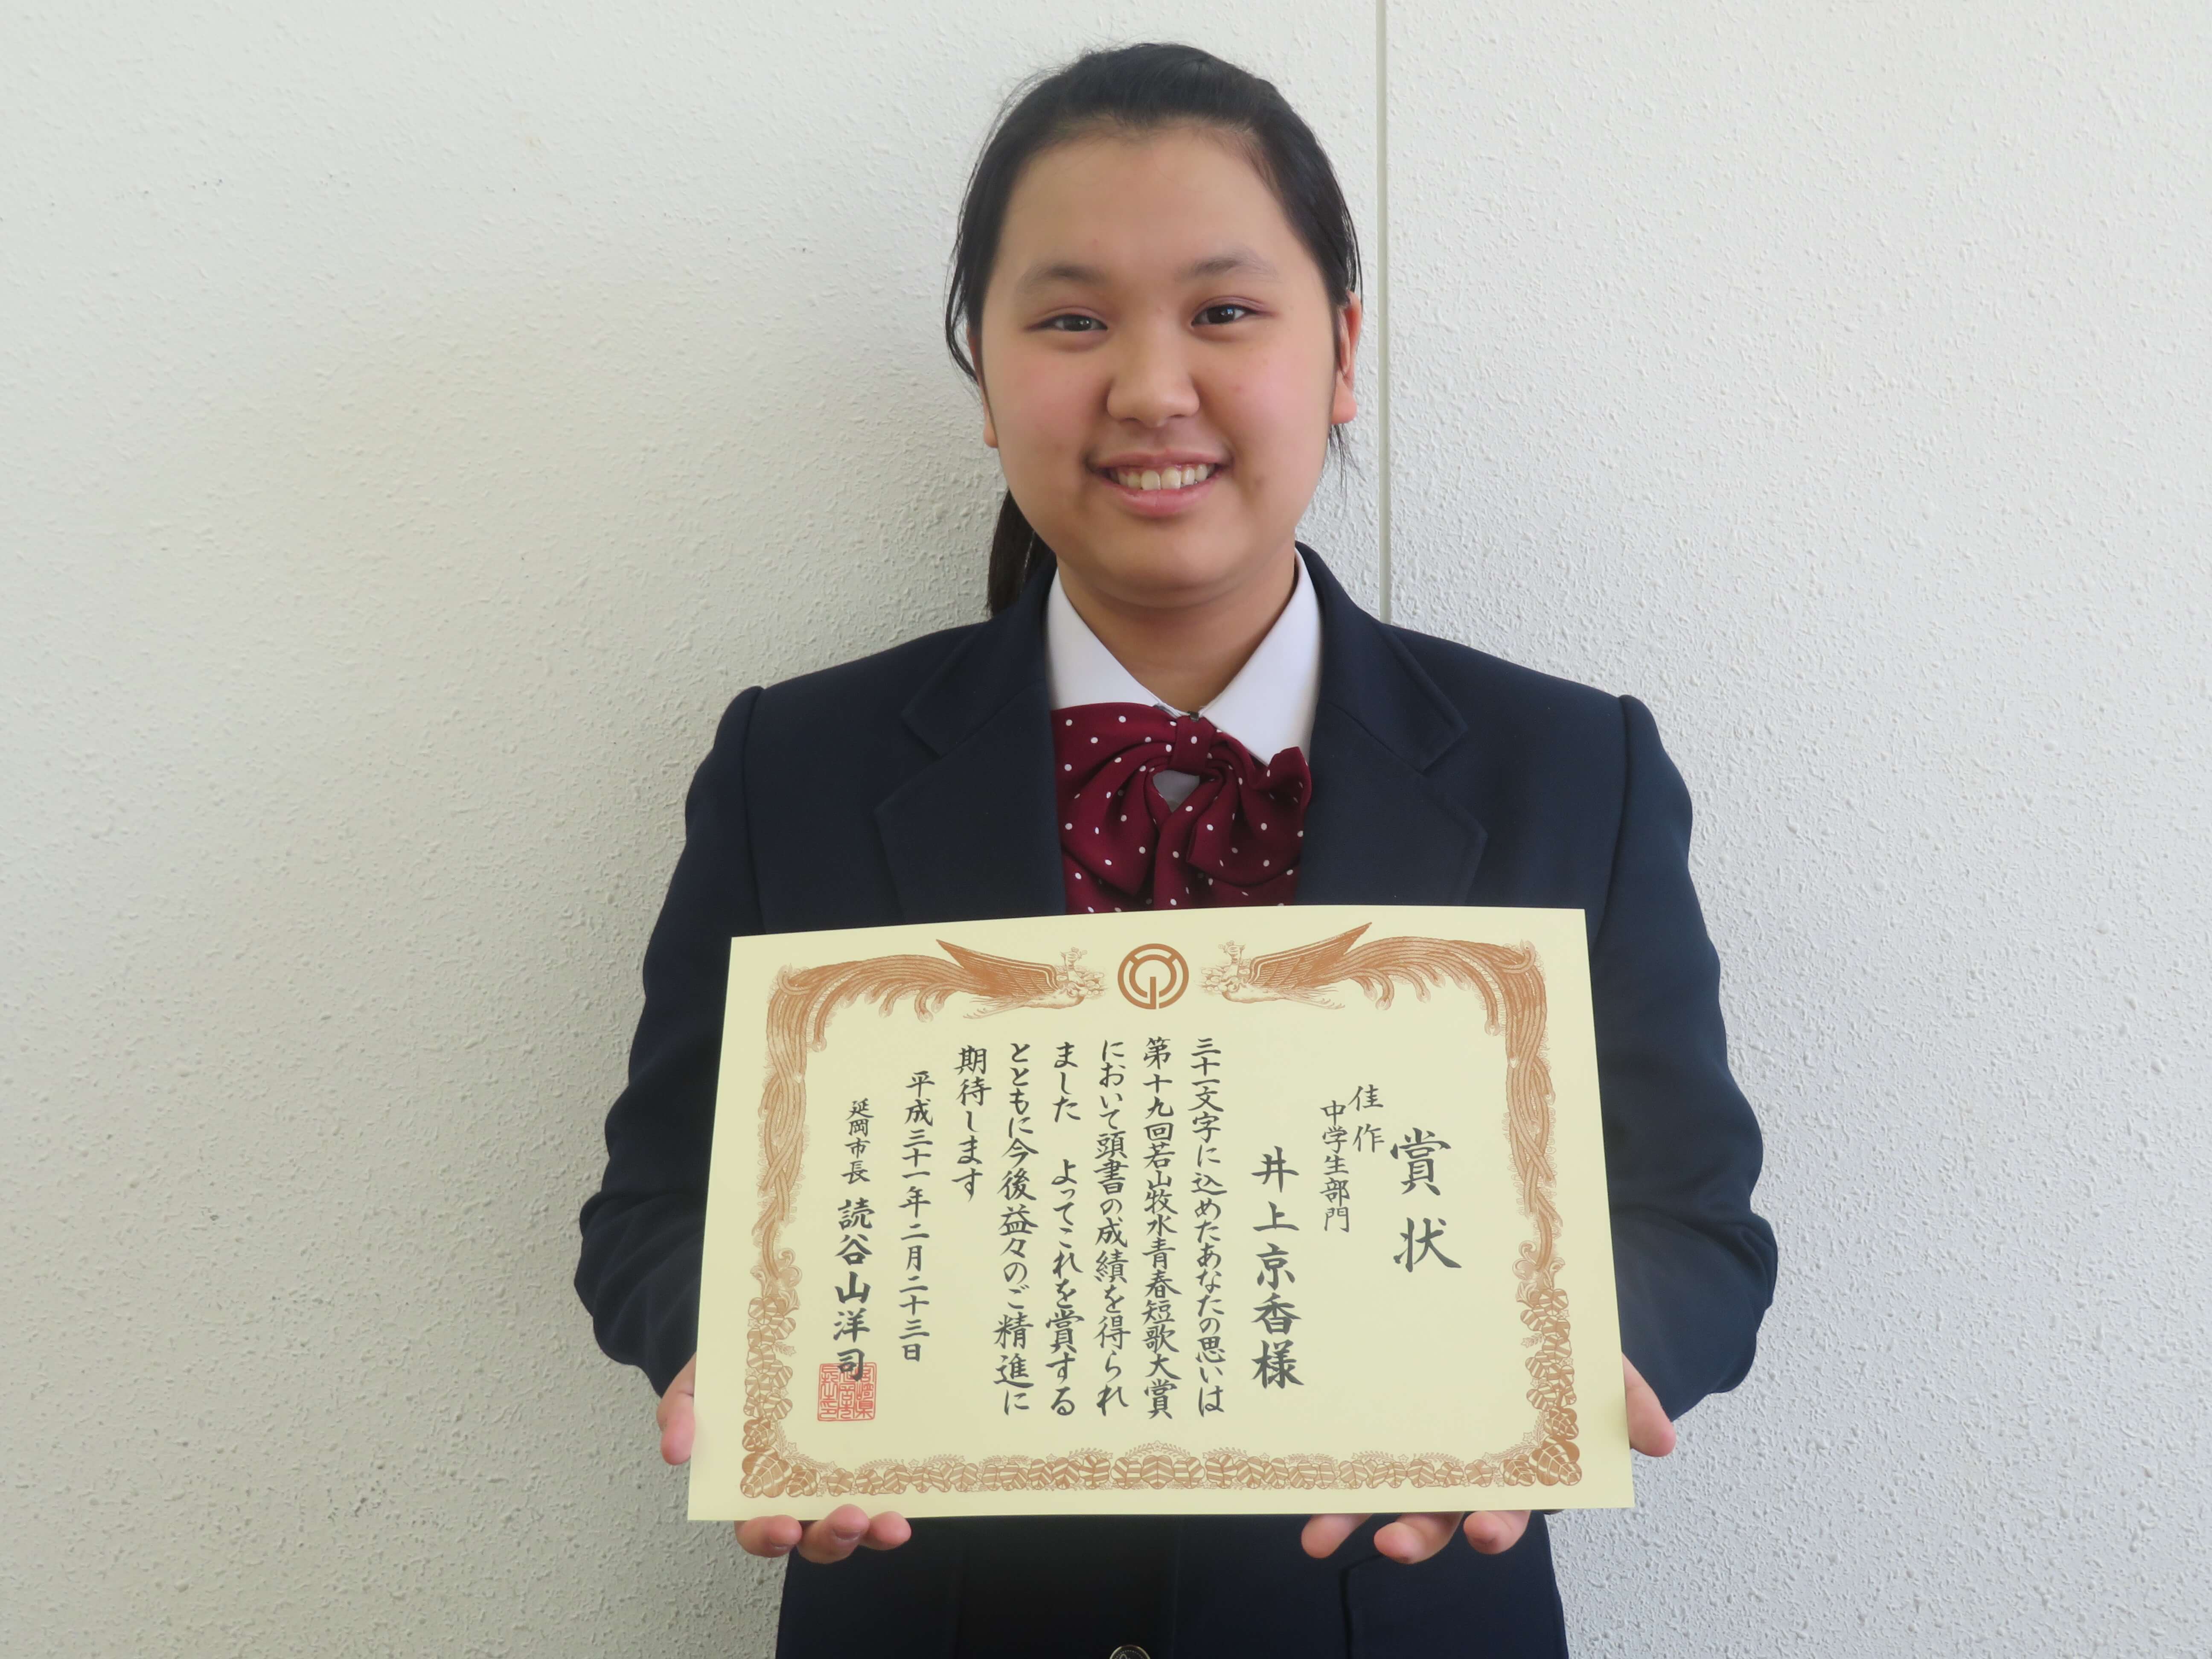 賞状
佳作
中学生部門
井上京香様
三十一文字に込めたあなたの思いは
第十九回若山牧水青春短歌大賞
において頭書の成績を得られ
ました　よってこれを賞する
とともに今後益々のご精進に
期待します
平成三十一年二月二十三日
延岡市長　読谷山洋司